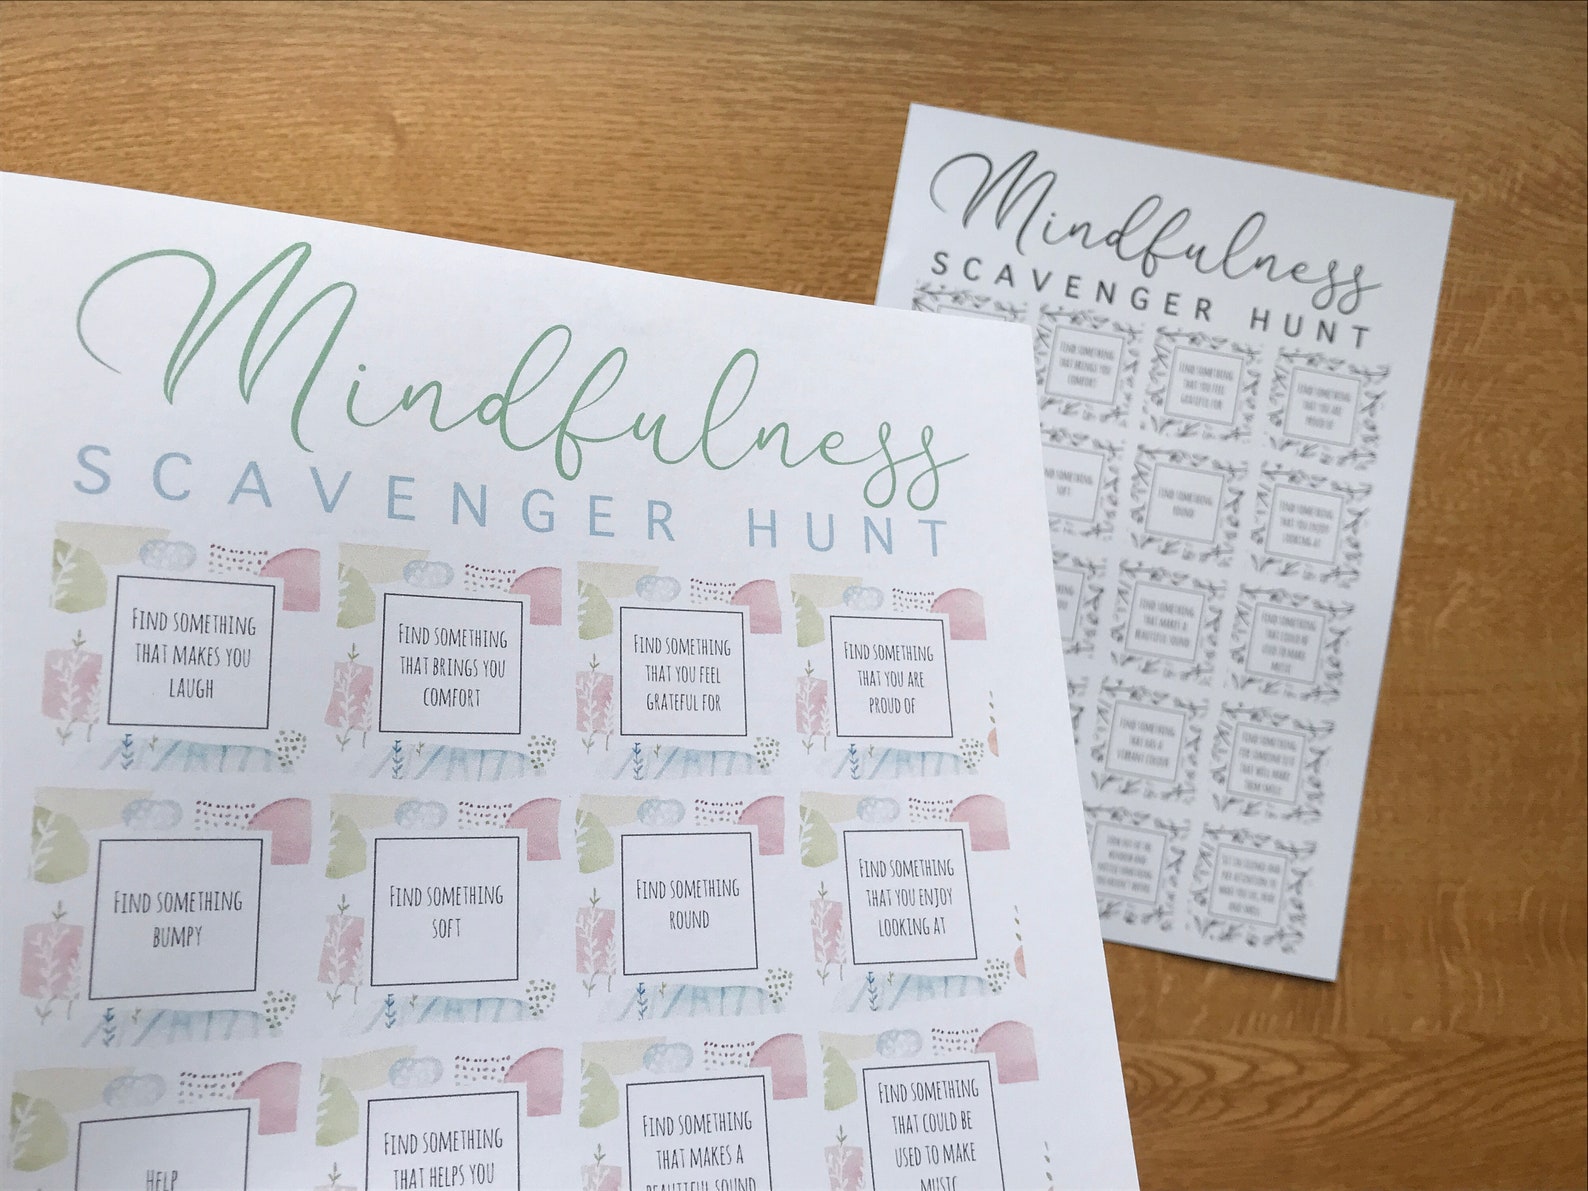 Mindfulness
SCAVENGER HUNT
FIND SOMETHING
THAT MAKES YOU
LAUGH
FIND SOMETHING
THAT BRINGS YOU
COMFORT
FIND SOMETHING
THAT YOU FEEL
GRATEFUL FOR
FIND SOMETHING
THAT YOU ARE
PROUD OF
FIND SOMETHING
BUMPY
FIND SOMETHING
SOFT
FIND SOMETHING
ROUND
FIND SOMETHING
THAT YOU ENJOY
LOOKING AT
HELP
FIND SOMETHING
THAT HELPS YOU
FIND SOMETHING
THAT MAKES A
BEAUTIFUL SOUND
FIND SOMETHING
THAT COULD BE
USED TO MAKE
MUSIC
Mindfulness
SCAVENGER HUNT
FIND SOMETHING
THAT BRINGS YOU
COMFORT
FIND SOMETHING
THAT YOU FEEL
GRATEFUL FOR
FIND SOMETHING
THAT YOU ARE
PROUD OF
FIND SOMETHING
SOFT
FIND SOMETHING
ROUND
FIND SOMETHING
THAT YOU ENJOY
LOOKING AT
FIND SOMETHING
THAT MAKES A
BEAUTIFUL SOUND
FIND SOMETHING
THAT COULD BE
USED TO MAKE
MUSIC
FIND SOMETHING
THAT HAS A
VIBRANT COLOUR
FIND SOMETHING
FOR SOMEONE ELSE
THAT WILL MAKE
THEM SMILE